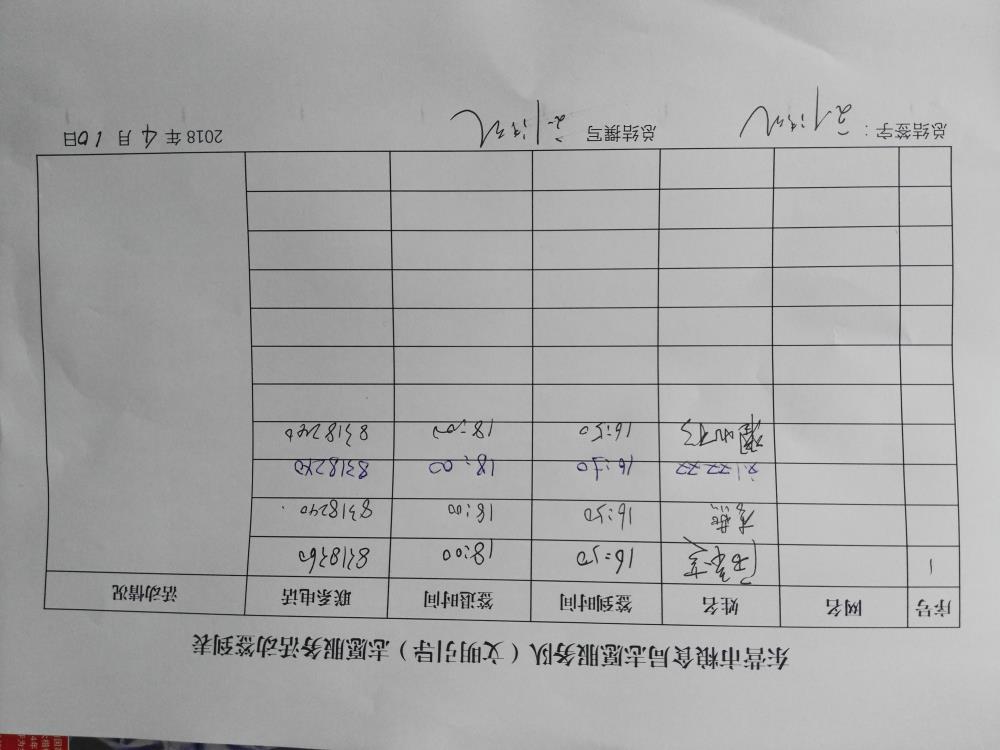 东营市粮食局志愿服务队（文明引导）志愿服务活动签到表
序号 网名 姓名 签到时间 签退时间 联系电话 活动情况
1 16:50 18:00 8318360
16:50 18:00 8318240
16:50 18:00 8318240
16:50 18:00 8318240
总结签字： 总结撰写 2018年4月10日